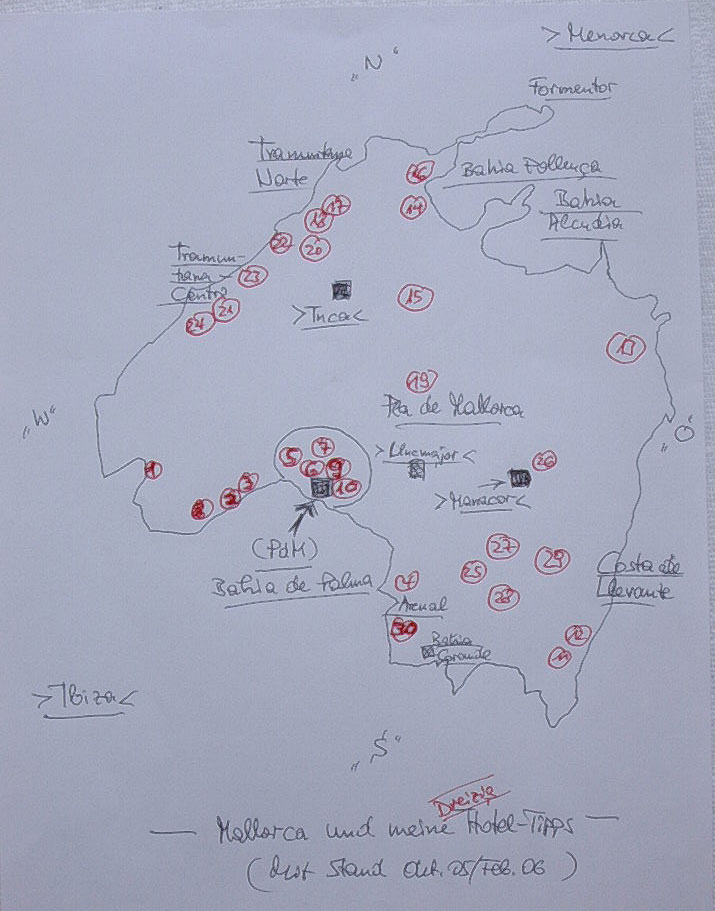 >Menorca<
"N"
Formentor
Tramuntana
Norte
16
Bahia Pollença
17
14
Bahia
Alcudia
18
22
20
Tramun-
tana-
Centro
23
15
21
>Inca<
24
13
19
Pla de Mallorca
"W"
"O"
7
5
>Llucmajor<
6
9
26
1
3
10
>Manacor<
2
(PdM)
27
29
Costa de
Llevante
Bahia de Palma
4
25
28
Arenal
30
12
Bahia
Grande
11
>Ibiza<
"S"
Dreizig
— Mallorca und meine Hotel-Tipps —
(mit Stand Okt. 05/Feb. 06)